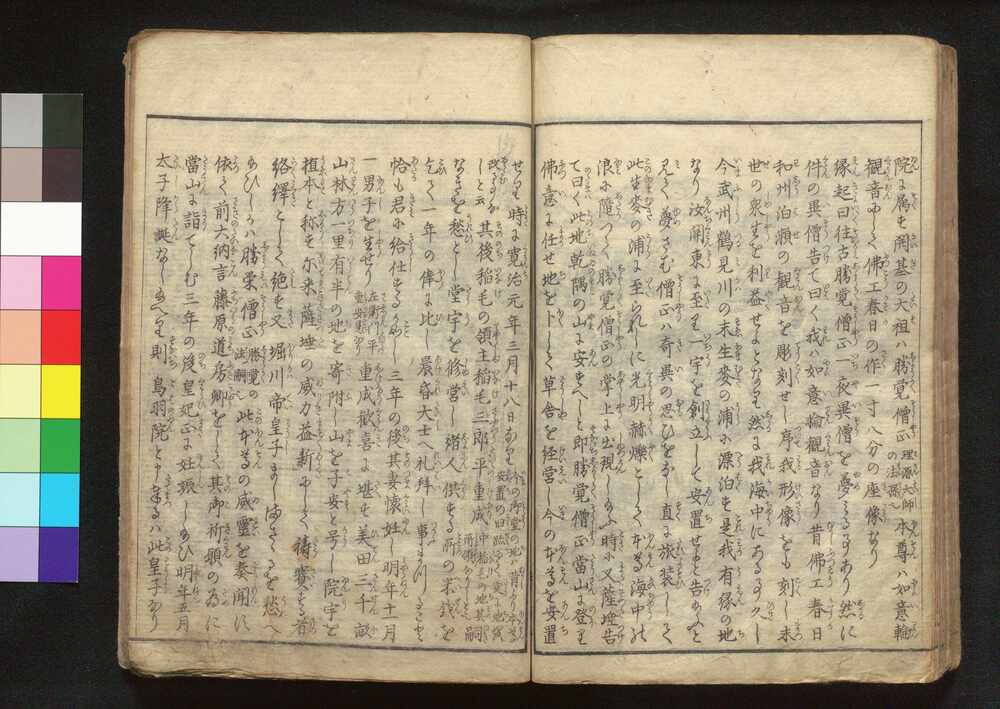 院に属す開基の大祖ハ勝覚僧正理源大師の法孫本尊ハ如意輪
観音にして佛工春日の作一寸八分の座像なり
縁起曰往古勝覚僧正一夜異僧を夢みる事あり然に
件の異僧告て曰く我ハ如意輪観音なり昔佛工春日
和州泊瀬の観音を彫刻せし序我形像をも刻し末
世の衆生を利益せよとなり然に我海中にある事久し
今武州鶴見川の末生麥の浦に漂泊を是我有縁の地
なり汝関東に至り一宇を創立して安置せよと告給ふと
見て夢さむ僧正ハ奇異の思ひをなし直に旅装して
此生麥の浦に至られしに光明赫爍として本尊海中の
浪に随つて勝覚僧正の掌上に出現し給ふ時に又薩埵告
て曰く此地乾隅の山に安すへしと即勝覚僧正當山に登り
佛意に任せ地を卜して草舎を経営し今の本尊を安置
せり時に寛治元年三月十八日なり今の御堂の地ハ昔より本尊安置の旧跡にして更に地を
改さりしと云其後稲毛の領主稲毛三郎平重成中稲毛の地其嗣
なきを愁とし堂宇を修営し諸人供する所の米銭を
乞て一年の俸に比し晨昏大士へ礼拝し事まつりさせ
恰も君に給仕するかめし三年の後其妻懐妊し明年十一月
一男子を生せり重成歓喜に堪す美田三千畝
山林方一里有半の地を寄附し山を子安と号し院宇を
植本と称す尓来薩埵の威力益新にして祷賽する者
絡繹として絶す又堀川帝皇子ましまさゝるを愁へ
給ひしハ勝栄僧正勝覚の法嗣此本尊の威靈を奏聞に
依て前大納言藤原道房卿をして其御祈願の為に
當山に詣てしむ三年の後皇妃正に妊娠し給ひ明年五月
太子降誕なし給へり則鳥羽院と申奉るハ此皇子なり